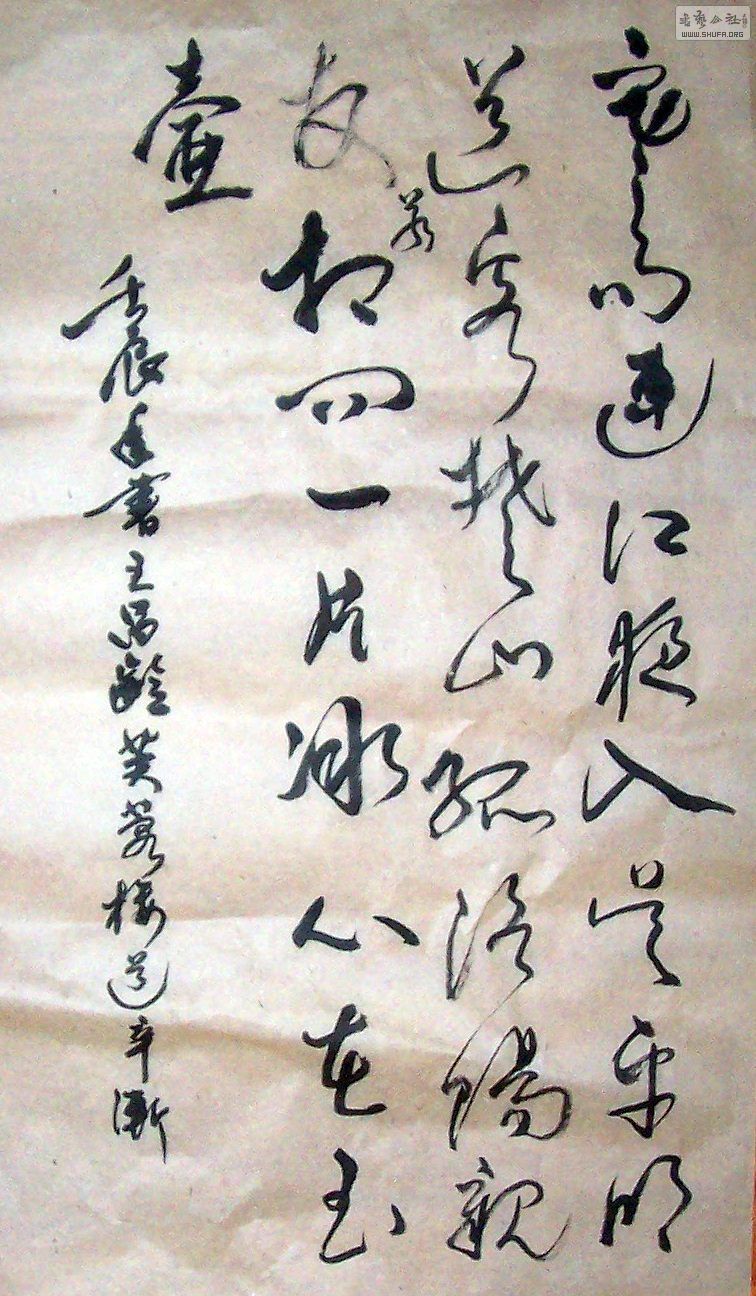 寒雨連江夜入吴平明
送客楚山孤洛陽親
友若相问一片冰心在玉
壶
壬辰年書王昌齡芙蓉楼送辛漸
书艺公社
WWW.SHUFA.ORG